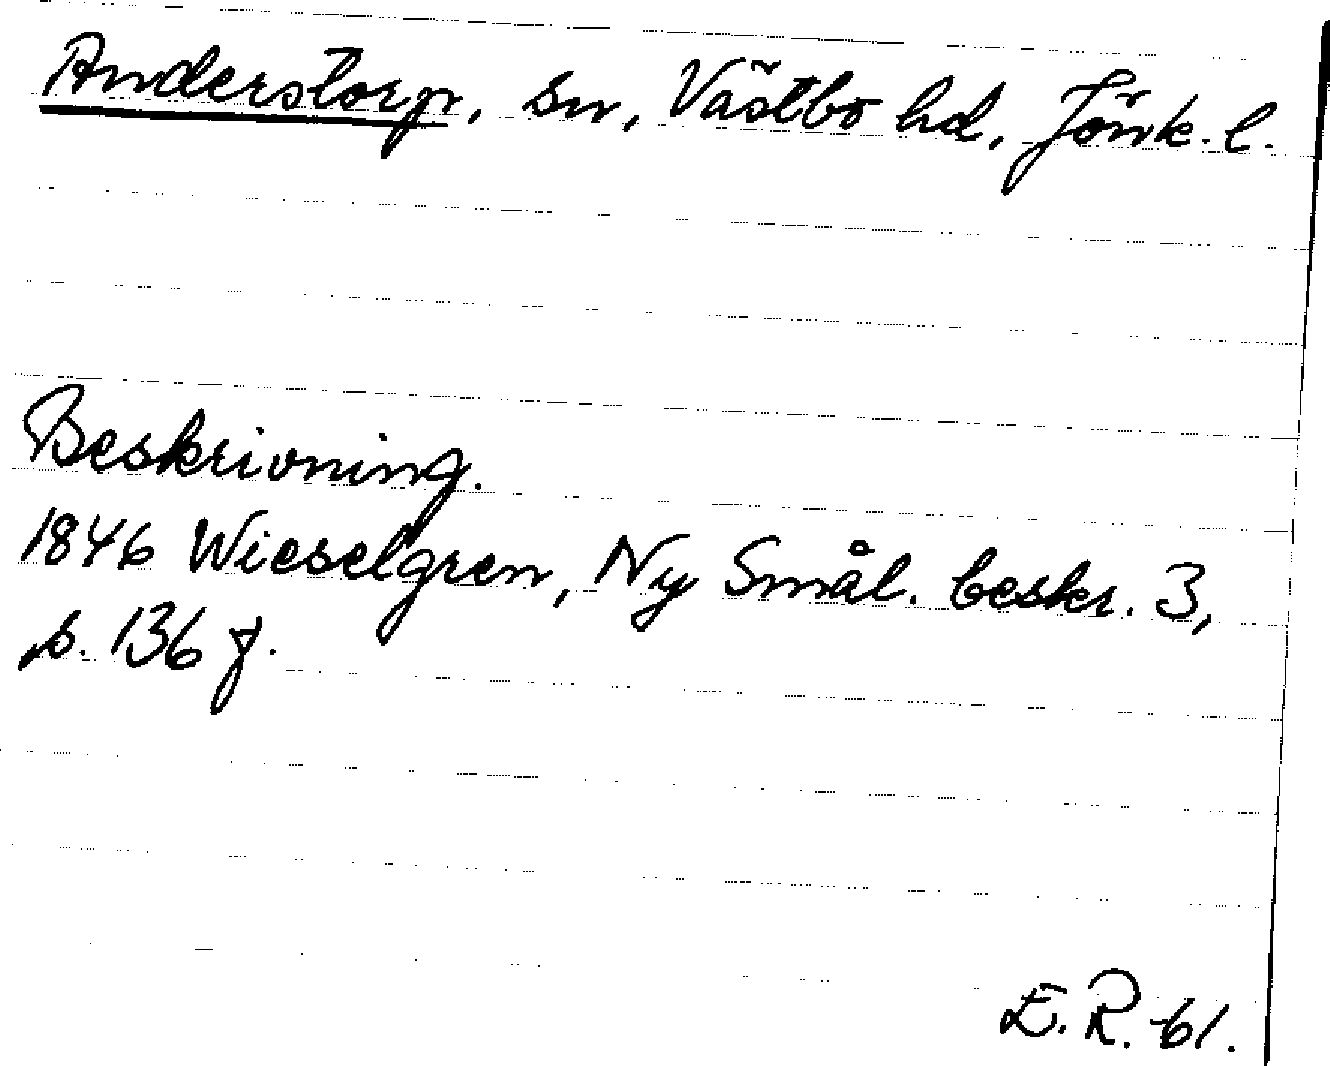 Anderstorp, sn, Västbo hd, Jönk. l.
Beskrivning.
1846 Wieselgren, Ny Smål. beskr. 3,
s. 136 f.
E. R. -61.